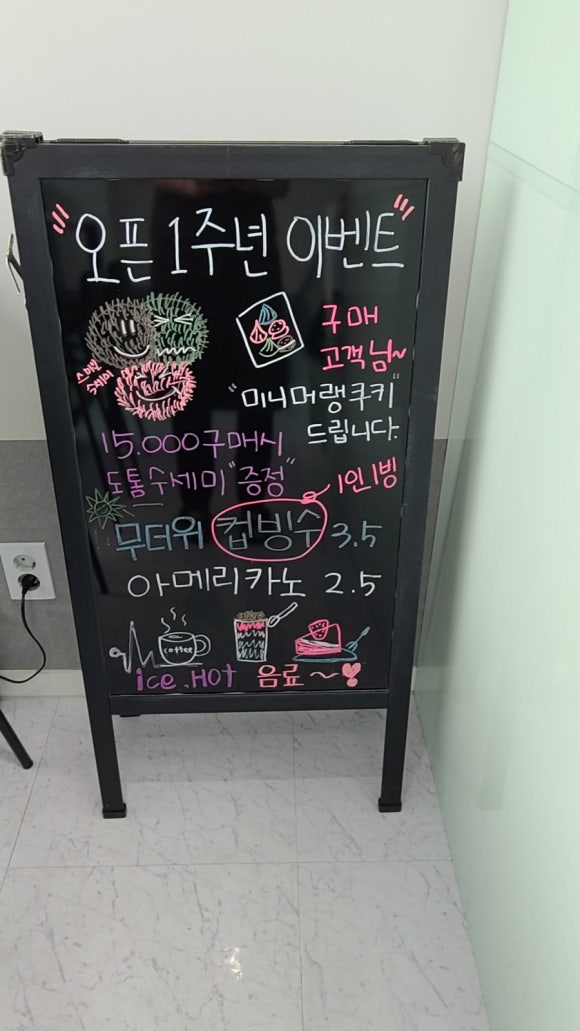 "오픈 1주년 이벤트"
구매
고객님~
스마일
수세미
"미니머랭쿠키"
드립니다.
15.000구매시
도톰수세미 "증정"
1인1빙
무더위 컵빙수 3.5
아메리카노 2.5
coffee
ice.HOT 음료~